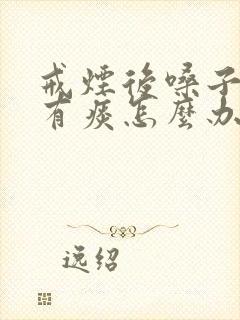 戒煙後嗓子
有痰怎麼办
逸绍